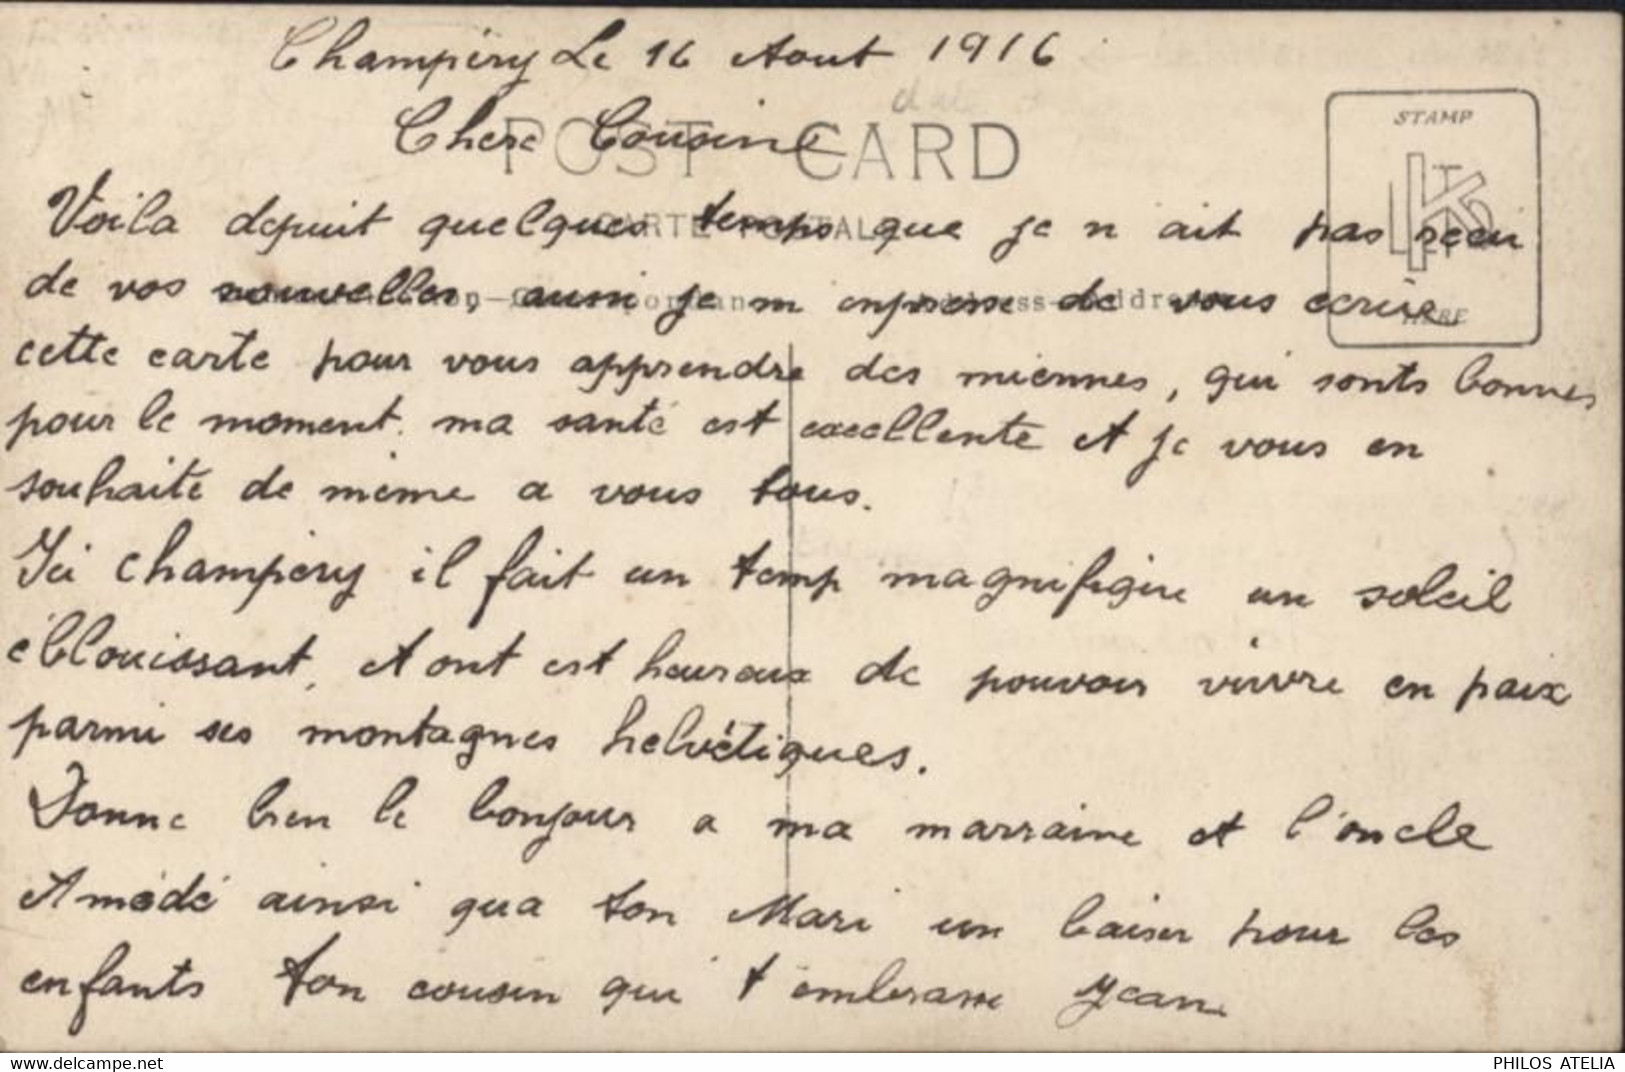 Champéry Le 16 Aout 1916
STAMP
Chere Cousine
POST CARD
Voila depuit quelques temps que je n ait pas recu
CARTE POSTALE
de vos nouvelles, aussi je m enpresse de vous ecrire
HERE
cette carte pour vous apprendre des miennes, qui sonts bonnes
pour le moment. ma santé est excellente et je vous en
souhaite de même a vous tous.
Ici champery il fait un temp magnifique un soleil
éblouissant, et ont est heureux de pouvoir vivre en paix
parmi ses montagnes helvétiques.
Donne bien le bonjour a ma marraine et l'oncle
Amédé ainsi qua ton Mari un baiser pour les
enfants ton cousin qui t embrasse Jean
https://www.delcampe.net
PHILOS ATELIA